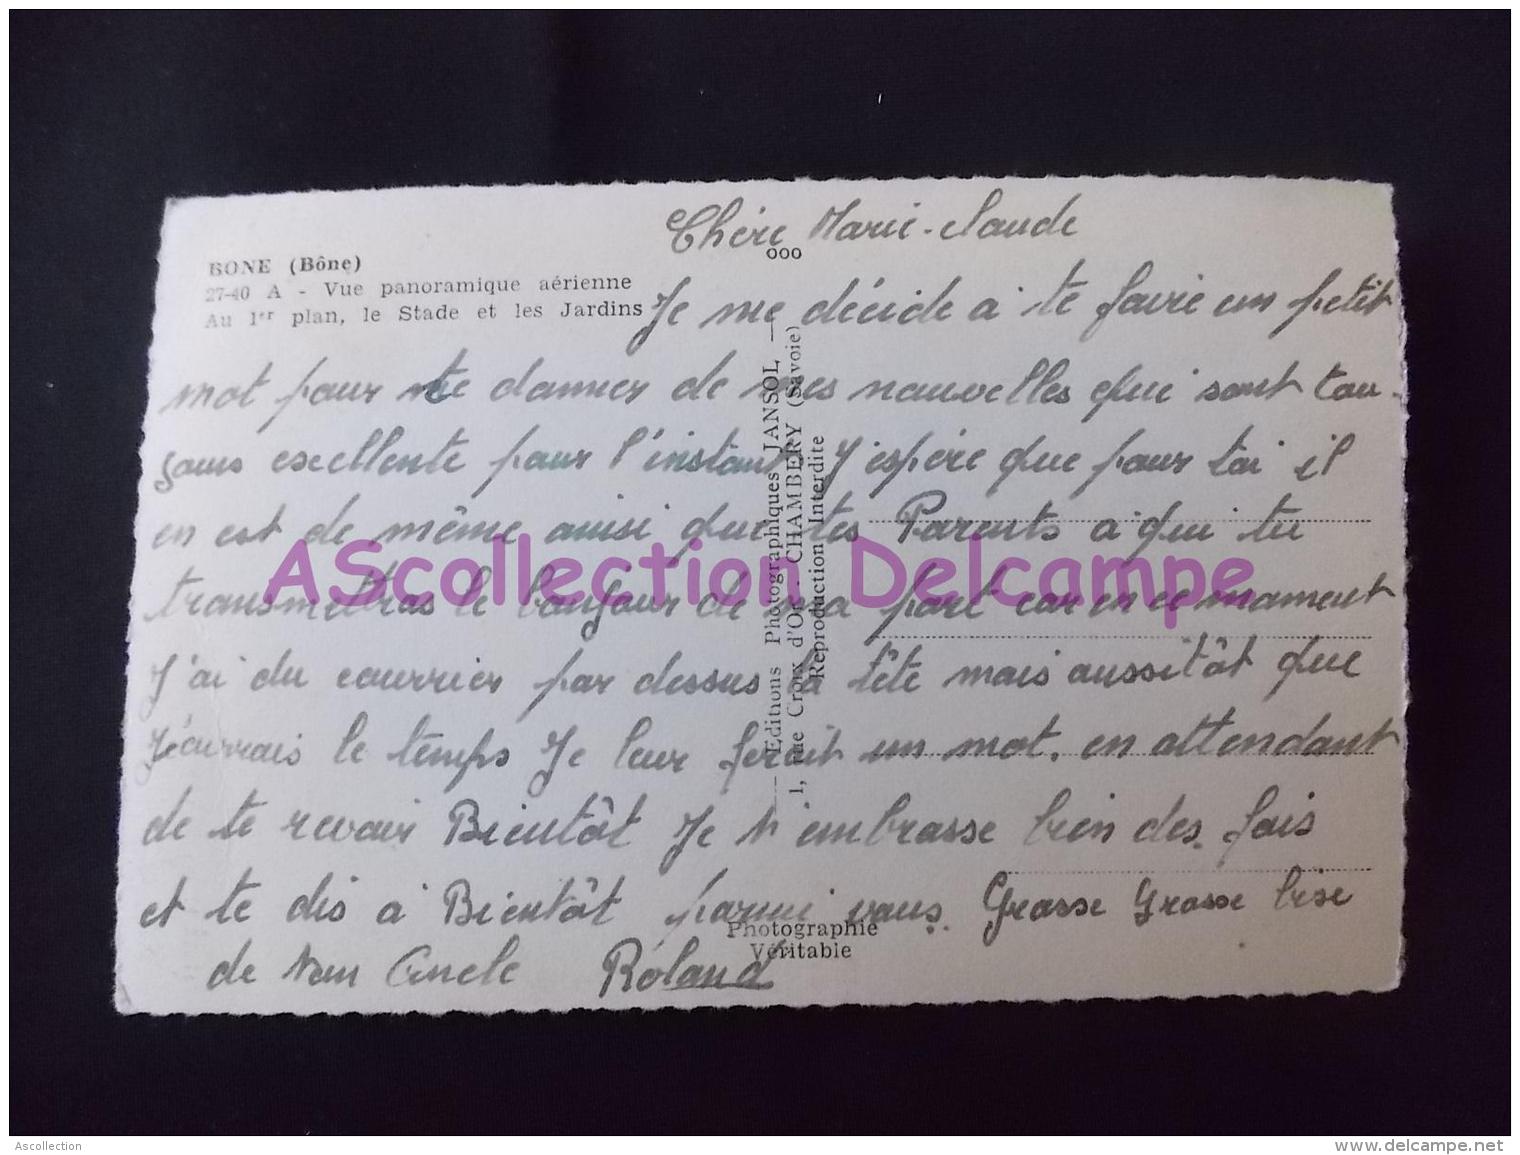 Chère Marie-claude
ooo
BONE (Bône)
27-40 A - Vue panoramique aérienne
Au 1er plan, le Stade et les Jardins
Je me décide à te faire un petit
mot pour te donner de mes nouvelles qui sont tou-
jours excellente pour l'instant J'espére que pour toi il
en est de même ainsi que tes Parents à qui tu
transmettras le bonjour de ma part car en ce moment
J'ai du courrier par dessus la tête mais aussitôt que
J'aurrais le temps Je leur ferait un mot. en attendant
de te revoir Bientôt Je t'embrasse bien des fois
et te dis à Bientôt parmi vous. Grosse Grosse bise
de ton Oncle Roland
Editions Photographiques JANSOL
1, rue Croix d'Or - CHAMBERY (Savoie)
Reproduction Interdite
Photographie
Véritable
AScollection Delcampe
Ascollection
www.delcampe.net